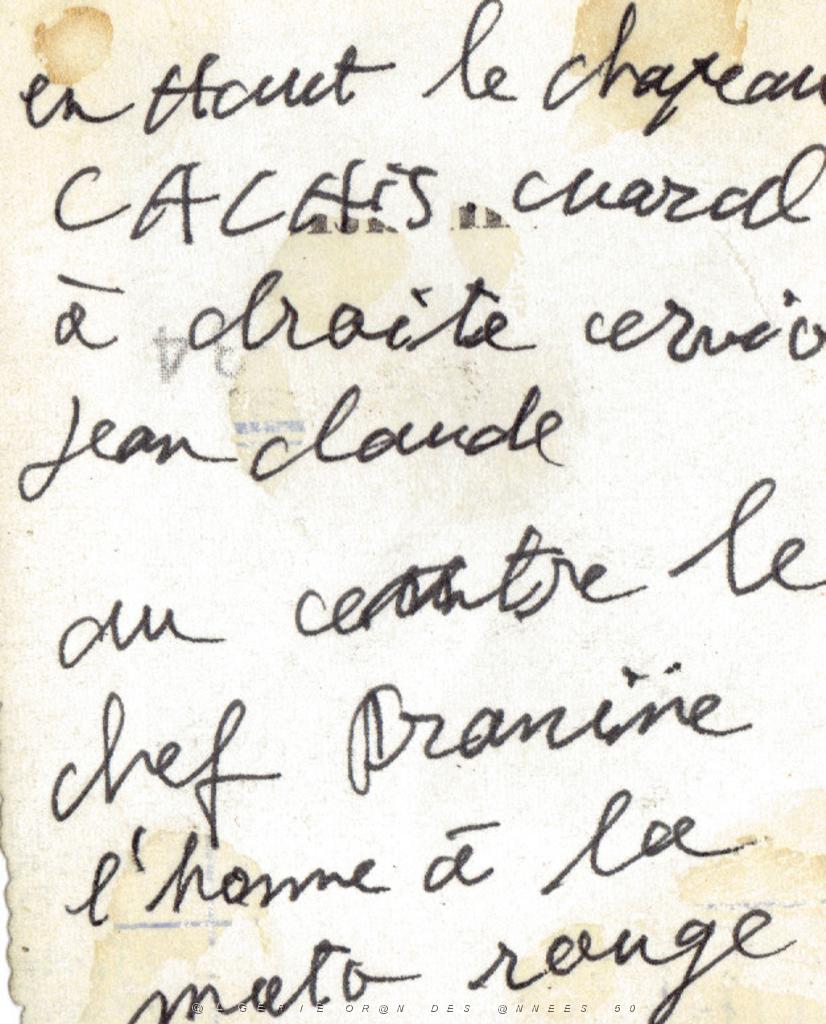 en Haut le chapeau
CALAIS. marcel
à droite cervio
Jean claude
au centre le
chef
l'homme à la
moto rouge
@LGERIE OR@N DES @NNEES 50